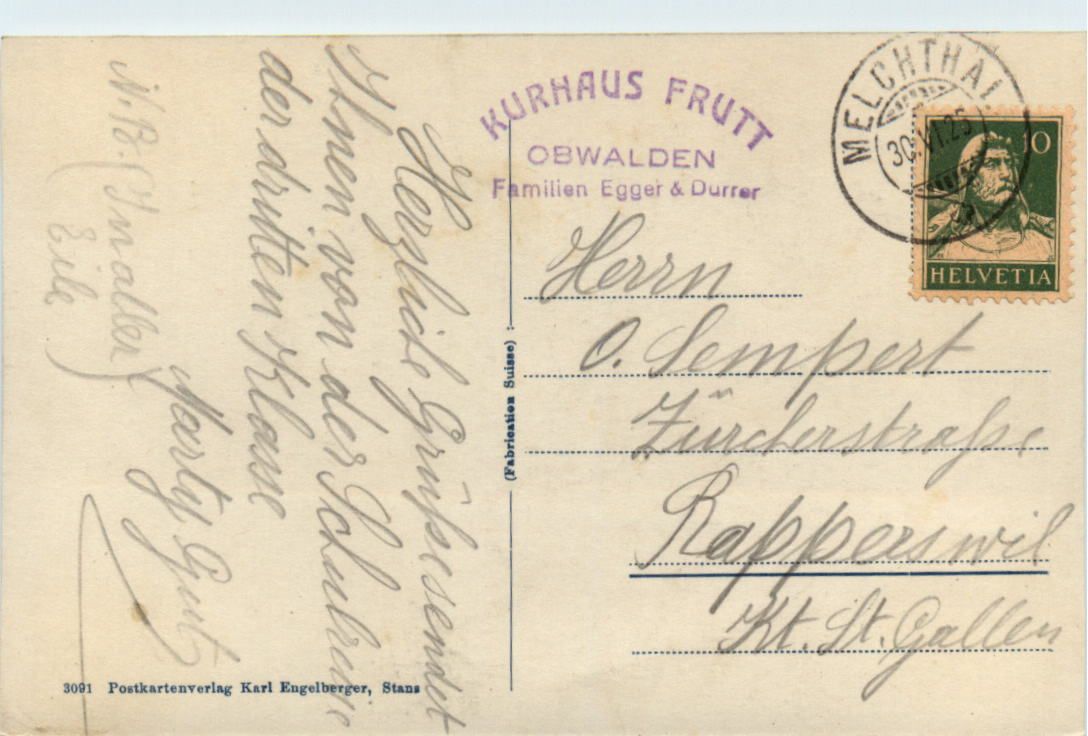 Herzliche Grüsse sendet
Ihnen von der Schulreise
der dritten Klasse
Marty Gut
N.B. (In aller
Eile)
KURHAUS FRUTT
OBWALDEN
Familien Egger & Durrer
MELCHTHAL
30.VI.25
10
HELVETIA
Herrn
O. Sempert
Zürcherstraße
Rapperswil
Kt. St. Gallen
(Fabrication Suisse)
3091 Postkartenverlag Karl Engelberger, Stans